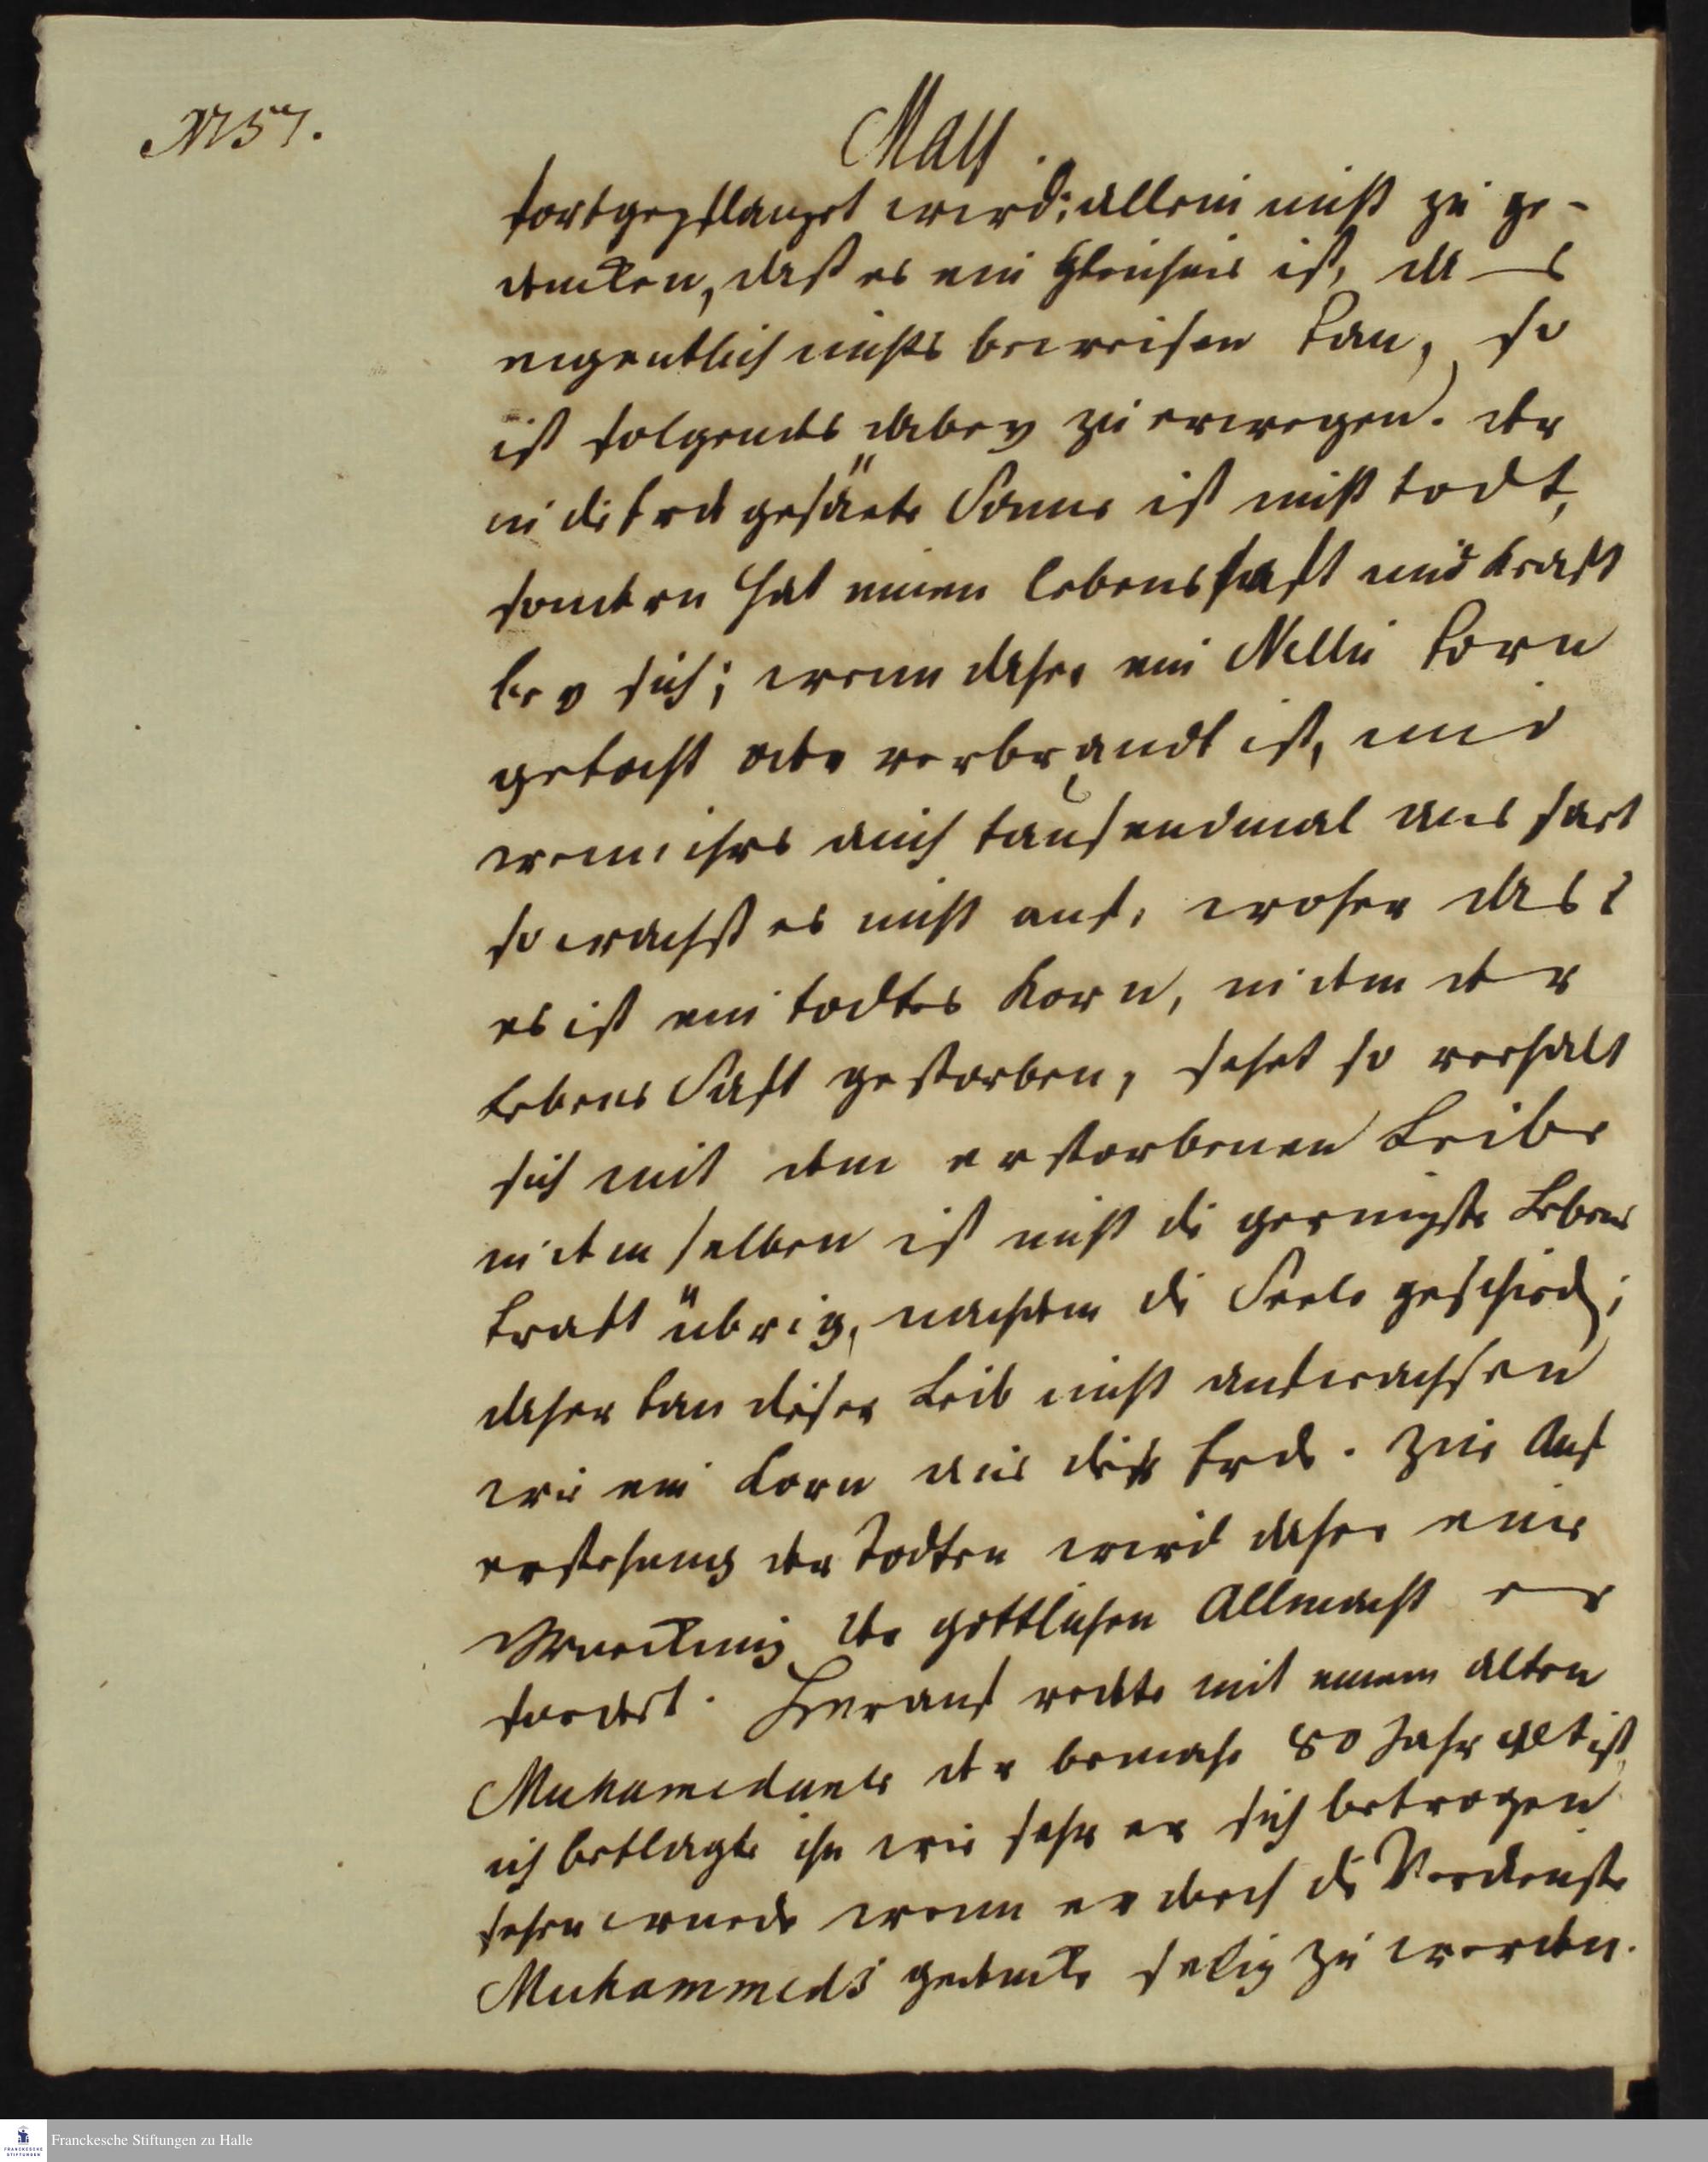 1757.
May
fortgepflanzet wird; allein nicht zu ge-
dencken, daß es ein Gleichnis ist, das
eigentlich nichts beweisen kan, so
ist folgends dabey zu erwegen. der
in die Erde gesäete Same ist nicht todt,
sondern hat einen lebenssaft und kraft
bey sich; wenn daher ein Nellu korn
gekocht oder verbrandt ist, und
wenn ihrs auch tausendmal aus saet
so wachst es nicht auf, woher das?
es ist ein todtes Korn, in dem der
lebens Saft gestorben, sehet so verhalt
sich mit dem erstorbenen Leibe
in dem selben ist nicht die geringste Lebens
kraft übrig, nachdem die Seele geschied;
daher kan dieser Leib nicht aufwachssen
wie ein Korn aus der Erde. Zur Auf
erstehung der Todten wird daher eine
Wurckung der gottlichen Allmacht er
fordert. Hierauf redete mit einem alten
Muhamedaner der beynahe 80 Jahr alt ist
ich beklagte ihn wie sehr er sich betrogen
sehen wurde wenn er durch die Verdienste
Muhammeds gedenckte selig zu werden.
Franckesche Stiftungen zu Halle
FRANCKESCHE
STIFTUNGEN